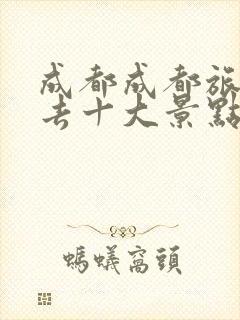 成都成都旅
去十大景點
螞蟻窩頭